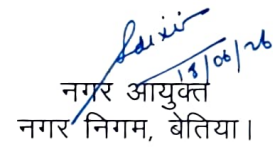 18/06/26
नगर आयुक्त
नगर निगम, बेतिया।